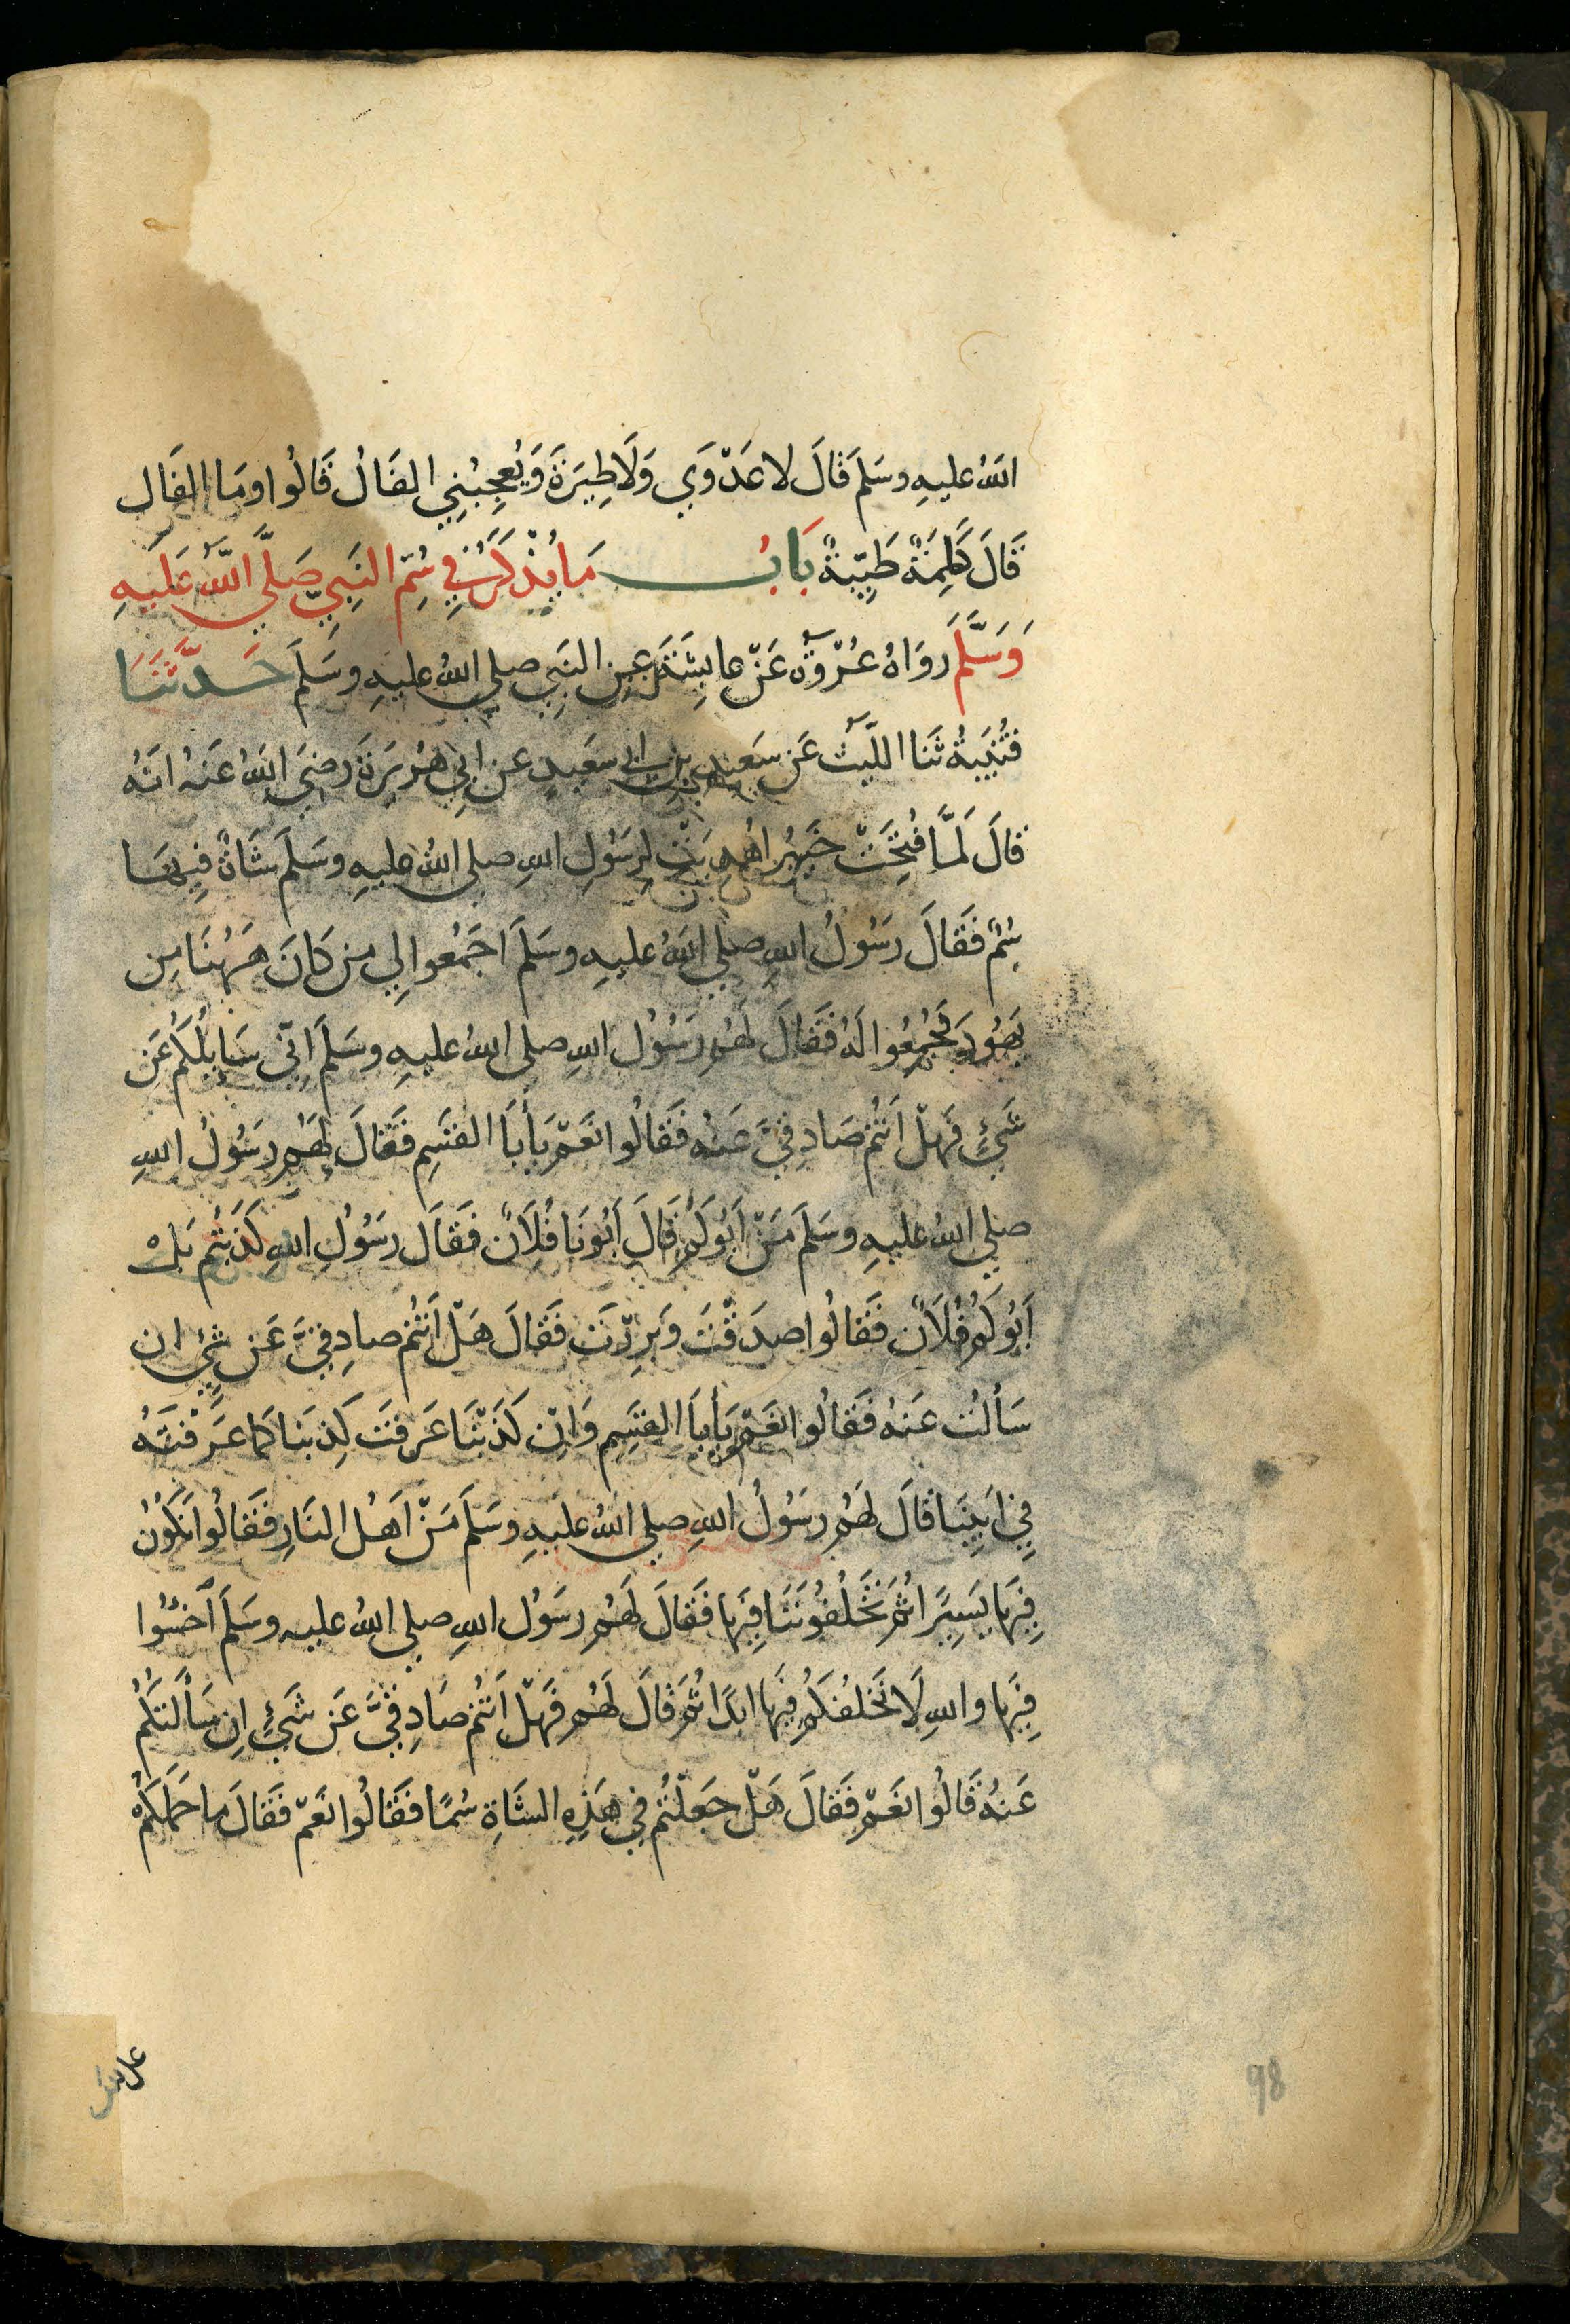 اللهُ عليهِ وسَلمَ قَالَ لا عَدْوَي وَلَا طِيَرَةَ وَيُعجِبُنِي الفَالُ قَالُوا وَمَا الفَال
قَالَ كَلِمَةٌ طَيِّبةٌ بَابُ مَا يُذْكَرُ فِي سُمِّ النَبِيِّ صَلَّي اللّه عَلَيهِ
وَسَلَّمَ رَوَاهُ عُرْوَة عَنْ عايِشَةَ عَنِ النَبِي صلي اللهُ عليهِ وسَلمَ حَدَّثَنَا
قُتَيبَةُ ثَنَا اللَّيث عَن سَعِيدِ بنِ ابي سَعَيدٍ عن ابِي هُرَيرَةَ رَضِيَ اللهُ عَنهُ انَهُ
قالَ لَمَّا فُتِحَتْ خَيبَر اُهدِيَتْ لِرَسُولِ اللهِ صلي اللهُ عليهِ وسَلَمَ شَاةٌ فِيهَا
سُمٌ فَقَالَ رَسُولُ اللهِ صلي اللهُ عليهِ وسَلمَ اجمَعُوا لِي من كَانَ هَهُنَا مِن
يَهُودَ فَجُمِعُوا لَهُ فَقَالَ لَهُم رَسُولُ اللهِ صلي اللهُ عليهِ وسَلَمَ اِنِّي سَايِلُكُم عَن
شَيْءٍ فَهَلْ اَنتُم صَادِقِيَّ عَنهُ فَقَالُوا نَعَمْ يَأبَا القَسِمِ فَقَالَ لَهُم رَسُولُ اللهِ
صلي اللهُ عليهِ وسَلَمَ مَنْ اَبُوكُم قَالَ اَبُونَا فُلَانٌ فَقَالَ رَسُولُ اللهِ كَذَبتُم بَل
اَبُوكُم فُلَانٌ فَقَالُوا صدَقْتَ وَبَرِرْتَ فَقَالَ هَلْ اَنتُم صادِقِيَّ عَن شَيٍ ان
سَألتُ عَنهُ فَقَالُوا نَعَمْ يَأبَا القَسِم وَاِنْ كَذَبْنَا عَرَفتَ كِذبَنَا كَمَا عَرَفْتَهُ
فِي اَبِينَا قَالَ لَهُم رَسُولُ اللهِ صلي اللهُ عليهِ وسَلَمَ مَنْ اَهلُ النَارِ فَقَالُوا نَكُونُ
فِيهَا يَسِيرًا ثُمَ تَخلُفُونَنَا فِيهَا فَقَالَ لَهُم رَسُولُ اللهِ صلي اللهُ عليه وسَلَمَ اَخسَئُوا
فِيهَا واللهِ لَا نَخلُفُكُم فِيهَا ابَدًا ثُمَ قَالَ لَهُم فَهَلْ اَنتُم صَادِقِيَّ عَن شَيْءٍ اِن سَألتَكُم
عَنهُ قَالُوا نَعَمْ فَقَالَ هَلْ جَعَلْتُم فِي هَذِهِ الشَاةِ سُمًّا فَقَالُوا نَعَمْ فَقَالَ ما حَمَلَكُم
98